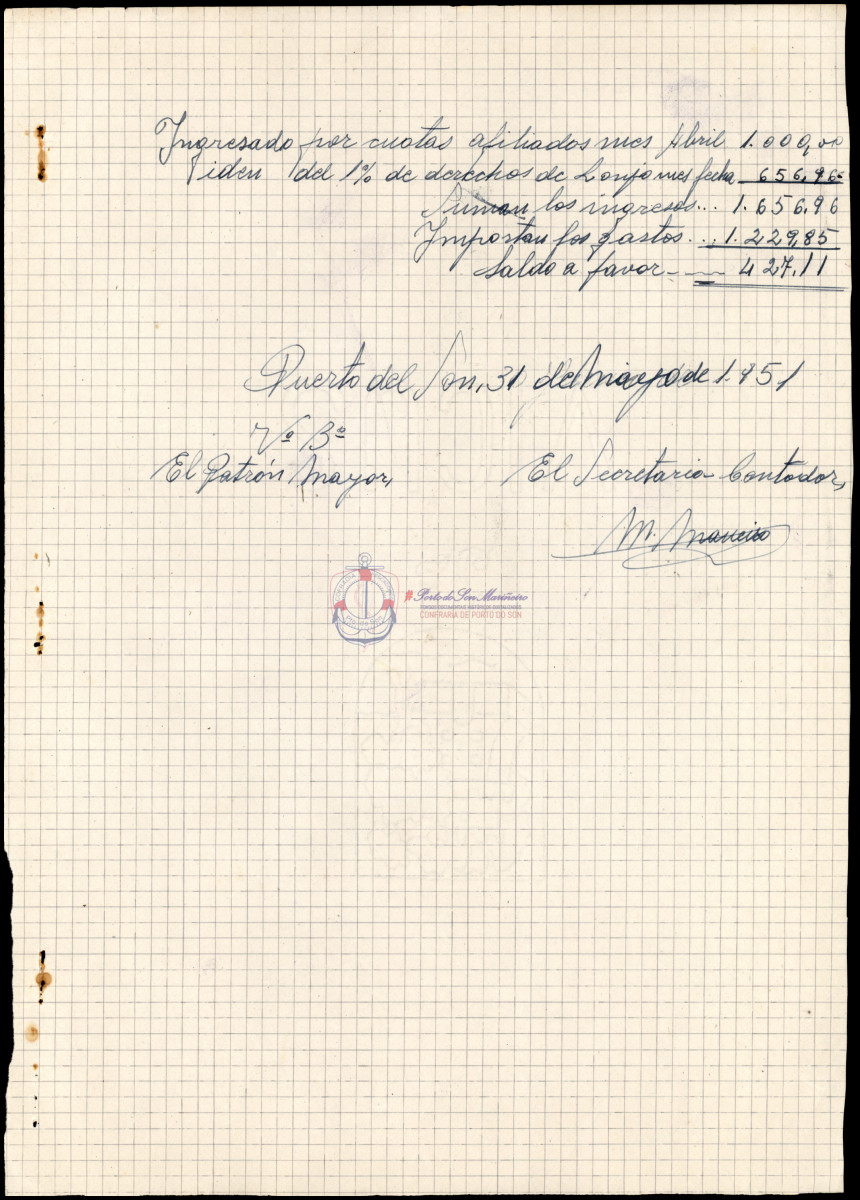 Ingresado por cuotas afiliados mes Abril 1.000,00
iden del 1% de derechos de Lonja mes fecha 656,96
Suman los ingresos... 1.656,96
Importan los gastos... 1.229,85
Saldo a favor 427,11
Puerto del Son, 31 de Mayo de 1.951
Vº Bº
El Patrón Mayor,
El Secretario Contador,
#Porto do Son Mariñeiro
FONDOS DOCUMENTAIS HISTÓRICOS DIXITALIZADOS
CONFRARÍA DE PORTO DO SON